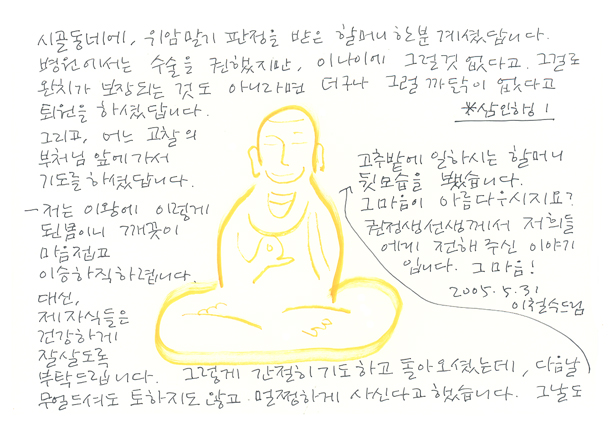 시골동네에, 위암말기 판정을 받은 할머니 한분 계셨답니다.
병원에서는 수술을 권했지만, 이나이에 그럴것 없다고. 그걸로
완치가 보장되는 것도 아니라면 더구나 그럴 까닭이 없다고
퇴원을 하셨답니다.
그리고, 어느 고찰의
부처님 앞에가서
기도를 하셨답니다.
- 저는 이왕에 이렇게
된몸이니 깨끗이
마음접고
이승하직하렵니다.
대신,
제 자식들은
건강하게
잘살도록
부탁드립니다. 그렇게 간절히 기도하고 돌아오셨는데, 다음날
무얼드셔도 토하지도 않고 멀쩡하게 사신다고 했습니다. 그날도
고추밭에 일하시는 할머니
뒷모습을 뵀습니다.
그마음이 아름다우시지요?
권정생선생께서 저희들
에게 전해 주신 이야기
입니다. 그 마음!
2005. 5. 31
이철수드림